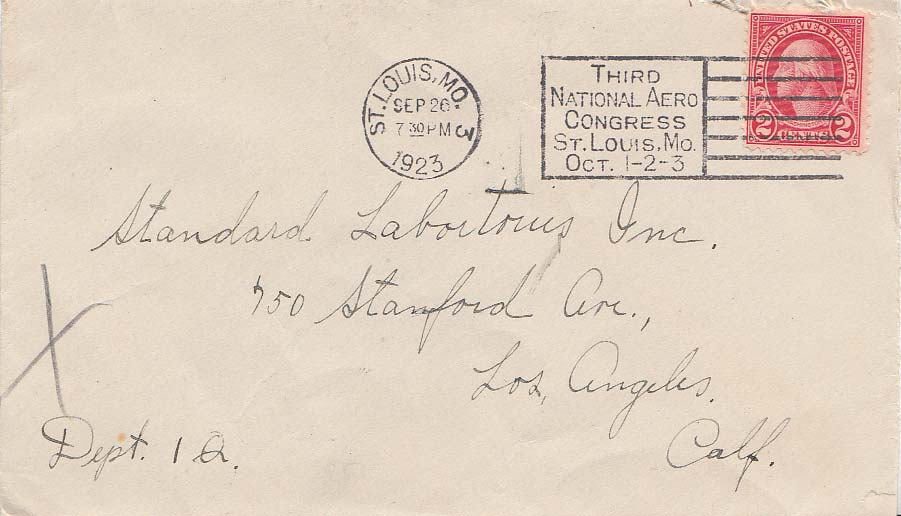 UNITED STATES POSTAGE
2 CENTS 2
ST. LOUIS, MO. 3
SEP 26
7 30 PM
1923
THIRD
NATIONAL AERO
CONGRESS
ST. LOUIS, MO.
OCT. 1-2-3
Standard Labortouis Inc.
750 Stanford Ave.,
Los, Angeles.
Calf.
Dept. 1 a.